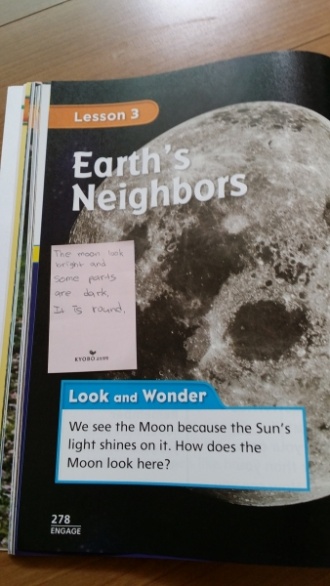 Lesson 3
Earth's
Neighbors
The moon look
bright and
some parts
are dark.
It is round.
KYOBO
Look and Wonder
We see the Moon because the Sun's
light shines on it. How does the
Moon look here?
278
ENGAGE